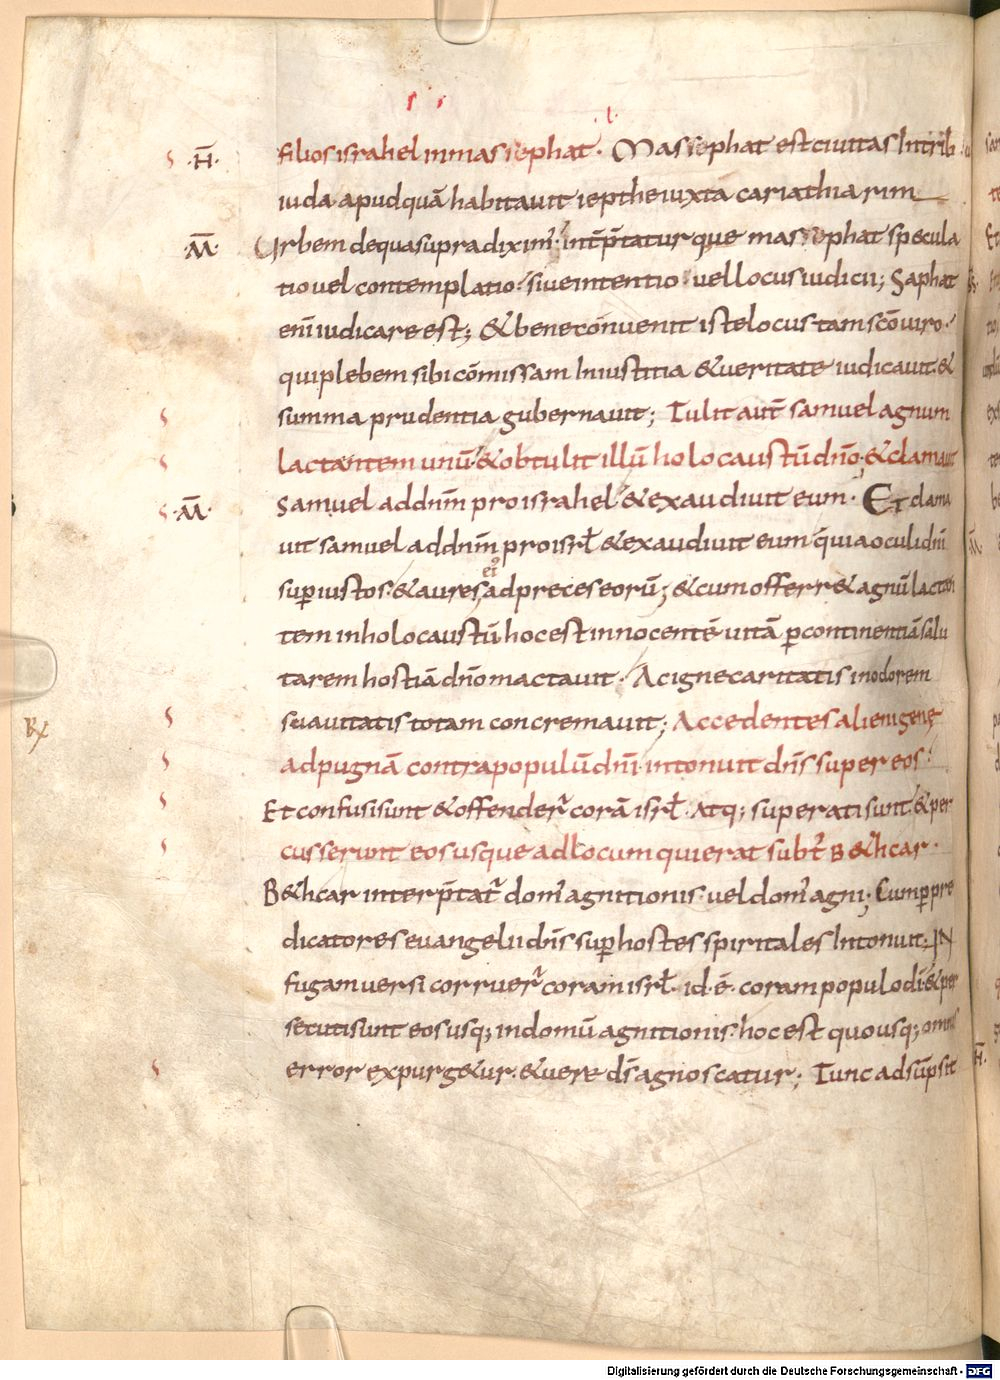 ·H̄· filios israhel in massephat · Massephat est ciuitas In trib
iuda apud quā habitauit iepthe iuxta cariathiarim
·M̄· Urbem de qua supra diximꝰ · int̄p̄tatur que massephat specula
tio uel contemplatio · siue intentio · uel locus iudicii ; Saphat
enī iudicare est ; & bene conuenit iste locus tam sc̄o uiro ·
qui plebem sibi cōmissam In iustitia & ueritate iudicauit · &
summa prudentia gubernauit ; Tulit aut̄ samuel agnum
lactantem unū · & obtulit illū holocaustū dn̄o · & clamauit
·M̄· Samuel ad dn̄m pro israhel & exaudiuit eum · Et clama
uit samuel ad dn̄m pro isrł & exaudiuit eum quia oculi dn̄i
suꝑ iustos · & aures eiꝰ ad preces eorū ; & cum offerr& agnū lactan
tem in holocaustū hoc est innocentē uitā ꝑ continentiā salu
tarem hostiā dn̄o mactauit · Ac igne caritatis in odorem
Rx suauitatis totam concremauit ; Accedentes alienigenę
ad pugnā contra populū dn̄i · intonuit dn̄s super eos ·
Et confusi sunt & offender̄ corā isrł · Atq; superati sunt · & per
cusserunt eos usque ad locum qui erat subt̄ B&hcar ·
B&hcar interp̄tat̄ domꝰ agnitionis · uel domꝰ agni ; Cum ꝑ pre
dicatores euangelii dn̄s suꝑ hostes spiritales Intonuit ; IN
fugam uersi corruer̄ coram isrł · id · ē · coram populo dī · & per
secuti sunt eos usq; in domū agnitionis · hoc est quousq; omnis
error expurg&ur · & uere d̄s agnoscatur ; Tunc adsūpsit
Digitalisierung gefördert durch die Deutsche Forschungsgemeinschaft - DFG